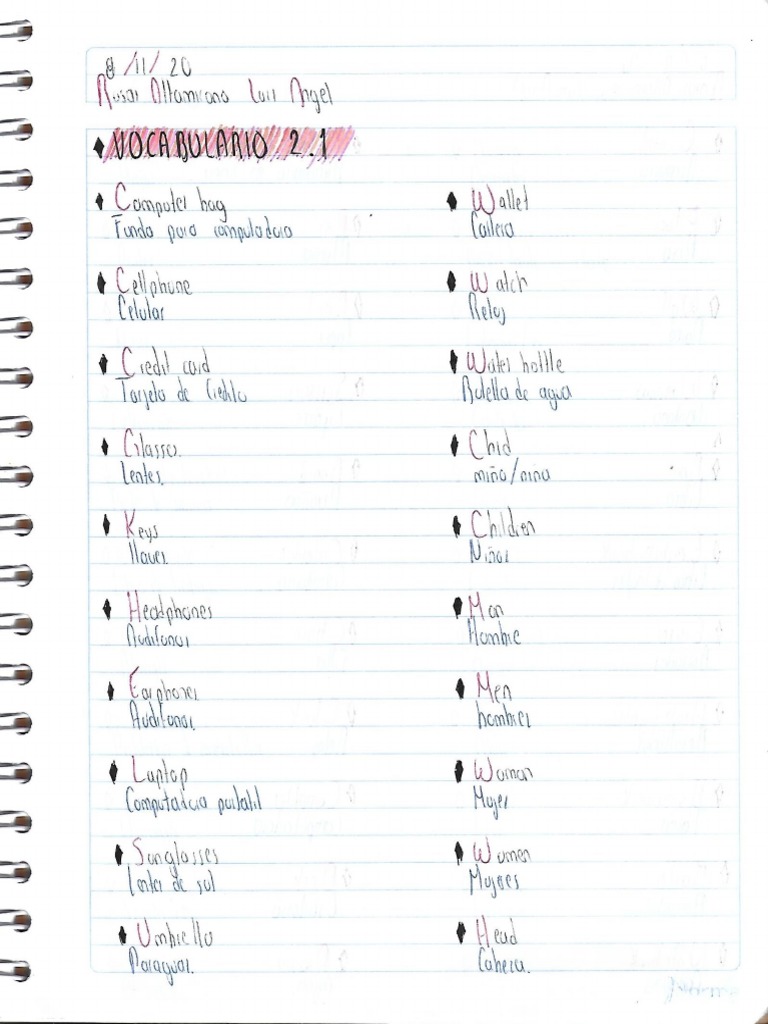 8/11/20
Rosas Altamirano Luis Angel
VOCABULARIO 2.1
Computer bag
Funda para computadora
Cellphone
Celular
Credit card
Tarjeta de Credito
Glasses
Lentes
Keys
llaves
Headphones
Audifonos
Earphones
Audifonos
Laptop
Computadora portatil
Sunglasses
Lentes de sol
Umbrella
Paraguas
Wallet
Cartera
Watch
Reloj
Water bottle
Botella de agua
Chid
niño/nina
Children
Niños
Man
Hombre
Men
hombres
Woman
Mujer
Women
Mujeres
Head
Cabeza